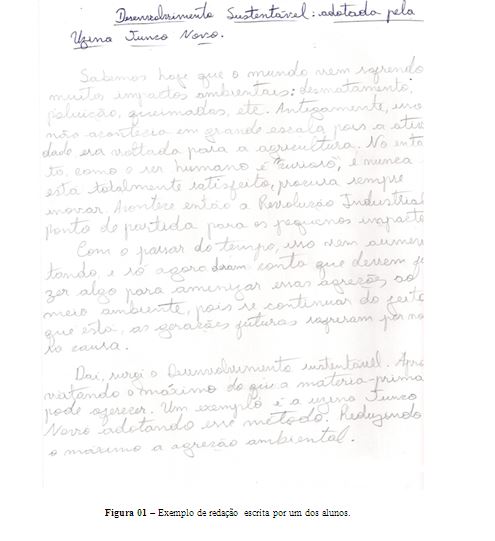 Desenvolvimento Sustentável: adotada pela
Uzina Junco Novo.
Sabemos hoje que o mundo vem sofrendo
muitos impactos ambientais: desmatamento,
poluição, queimadas, etc. Antigamente, isso
não acontecia em grande escala pois a ativi
dade era voltada para a agricultura. No enta
to, como o ser humano é "curioso", e nunca
esta totalmente satisfeito, procura sempre
inovar. Acontece então a Revolução Industrial
ponto de partida para os pequenos impacto
Com o passar do tempo, isso vem aumen
tando, e só agora deram conta que devem fa
zer algo para amenizar essas agreções ao
meio ambiente, pois se continuar do jeito
que está, as gerações futuras sofreram por no
sa causa.
Dai, surgi o Desenvolvimento sustentável. Apro
veitando o máximo do que a materia-prima
pode oferecer. Um exemplo é a uzina Junco
Novo adotando esse metodo. Reduzindo
o máximo a agreção ambiental.
Figura 01 – Exemplo de redação escrita por um dos alunos.